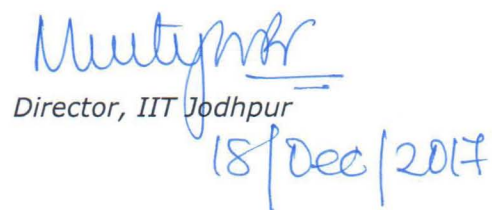 Director, IIT Jodhpur
18/Dec/2017